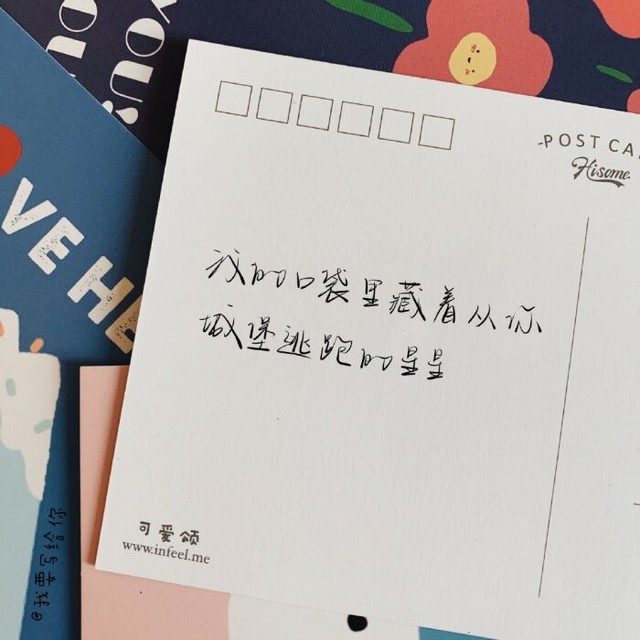 YOU?
YOU
VE HE
POST CA
Hisome
我的口袋里藏着从你
城堡逃跑的星星
可爱颂
www.infeel.me
@我要写给你